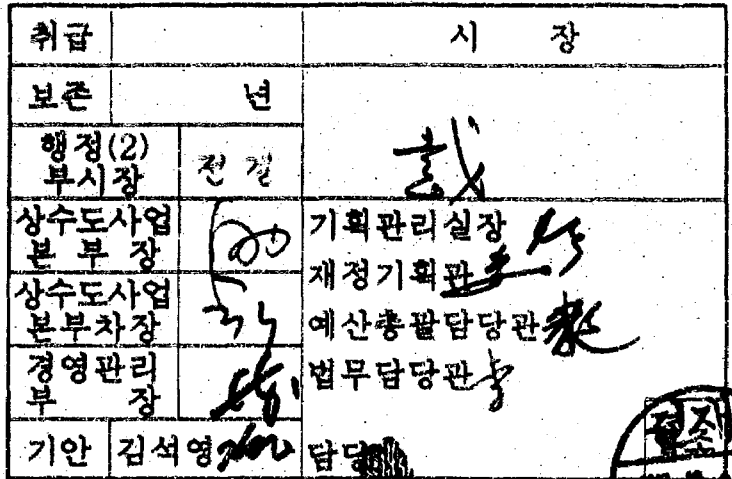 취급
시 장
보존 년
행정(2)
부시장
전결
상수도사업
본 부 장
기획관리실장
재정기획관
상수도사업
본부차장
예산총괄담당관
경영관리
부 장
법무담당관
기안 김석영
담당